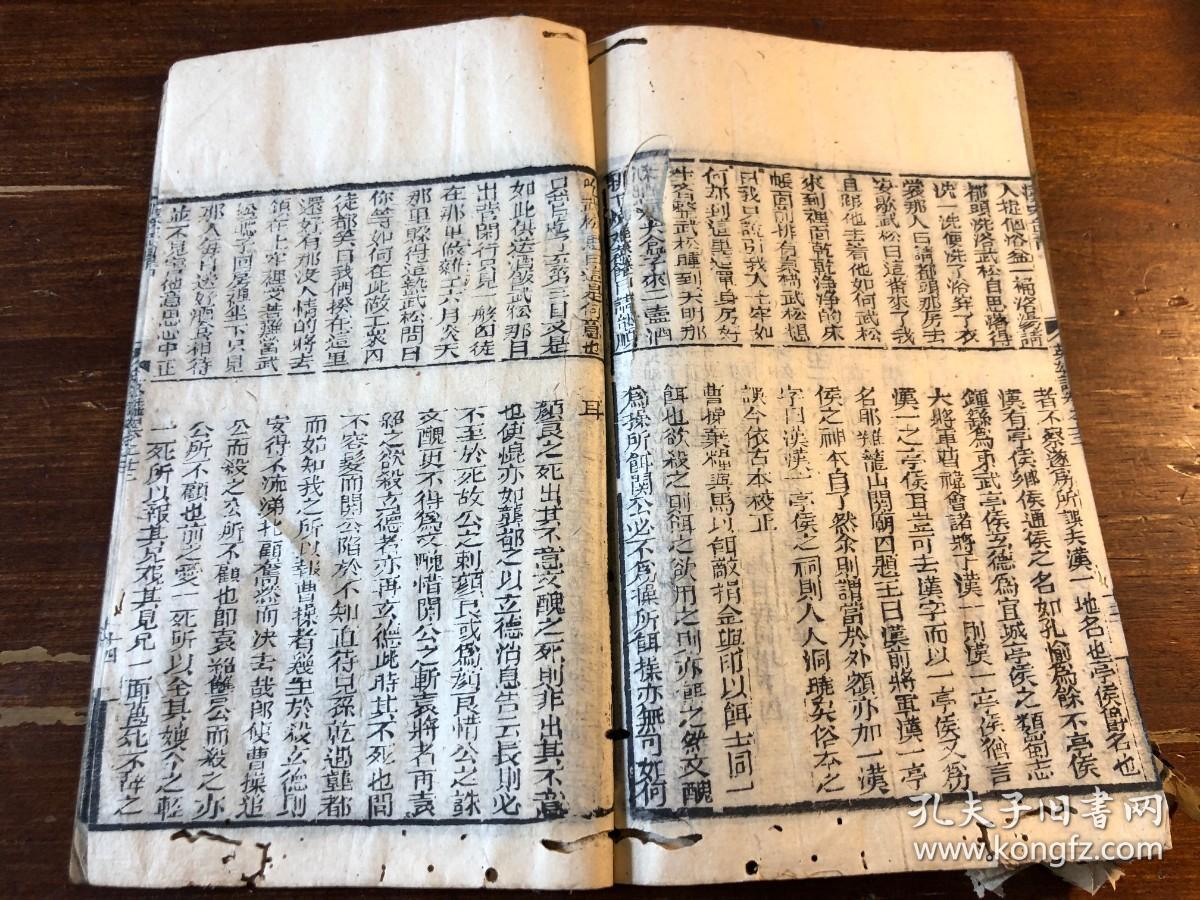 入提個浴盆一桶湯來請
都頭洗浴武松自思
洗一洗便洗了浴穿了衣
裳那人曰請都頭那房去
安歇武松曰這番來了我
自跟他去看他如何武松
來到裡面乾乾淨淨的床
帳面前排有桌椅武松想
曰我只說引我入土牢如
何却到這里這單身房好
生齊整武松睡到天明那
來一壺酒
者不察遂為所誤夫漢一地名也亭侯爵名也
漢有亭侯鄉侯通侯之名如孔愉為餘不亭侯
鍾繇為東武亭侯玄德為宜城亭侯之類蜀志
大將軍費禕會諸將于漢一則漢一亭侯猶言
漢一之亭侯耳豈可去漢字而以一亭侯又為
名耶雞籠山關廟內題主曰漢前將軍漢一亭
侯之神本自了然余則謂當於外額亦加一漢
字曰漢漢一亭侯之祠則人人洞曉矣俗本之
誤今依古本校正
曹操棄糧與馬以餌敵捐金與印以餌士同一
餌也欲殺之則餌之欲用之則亦餌之然文醜
為操所餌關公必不為操所餌操亦無可如何
耳
吃武松
只恁自吃了至第三日又是
如此供送酒飯武松那日
出營閑行只見一般囚徒
在那里做雜工六月炎天
那里躲得這熱武松問曰
你等如何在此敵工衆囚
徒都笑曰我們揆在這里
還好有那沒人情的將去
鎖在上牢裡受苦無當武
松聽了回房裡坐下只見
那人每日送好酒食相待
並不見害他意思心中正
顏良之死出其不意文醜之死則非出其不意
也使焜亦如龔都之以玄德消息告云長則必
不至於死故公之刺顏良或為顏良惜公之誅
文醜更不得為文醜惜關公之斬袁將者再袁
紹之欲殺玄德者亦再玄德此時其不死也間
不容髮而關公陷於不知直待見孫乾遇龔都
而如知我之所以報曹操者幾至於殺玄德則
安得不流涕北顧奮然而决去哉郎使曹操追
公而殺之公所不顧也即袁紹讐公而殺之亦
公所不顧也前之愛一死所以全其嫂今之輕
一死所以報其兄不覩其見兄一面萬死不辭之
十四
孔夫子旧书网
www.kongfz.com